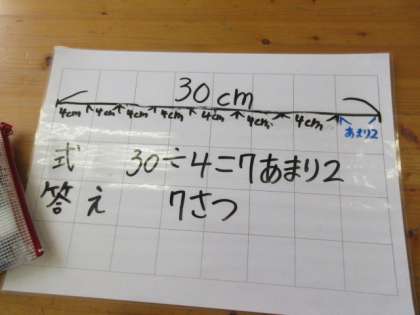 30cm
4cm 4cm 4cm 4cm 4cm 4cm 4cm あまり2
式 30÷4=7あまり2
答え 7さつ